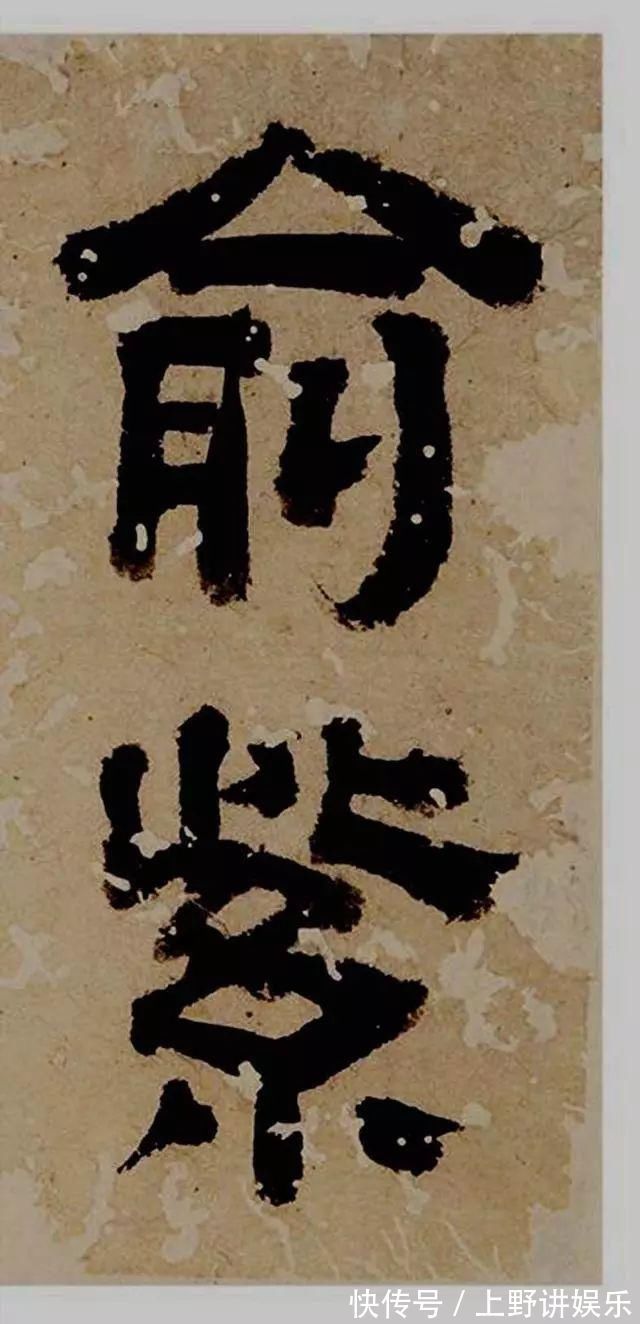 俞
紫
快传号/上野讲娱乐